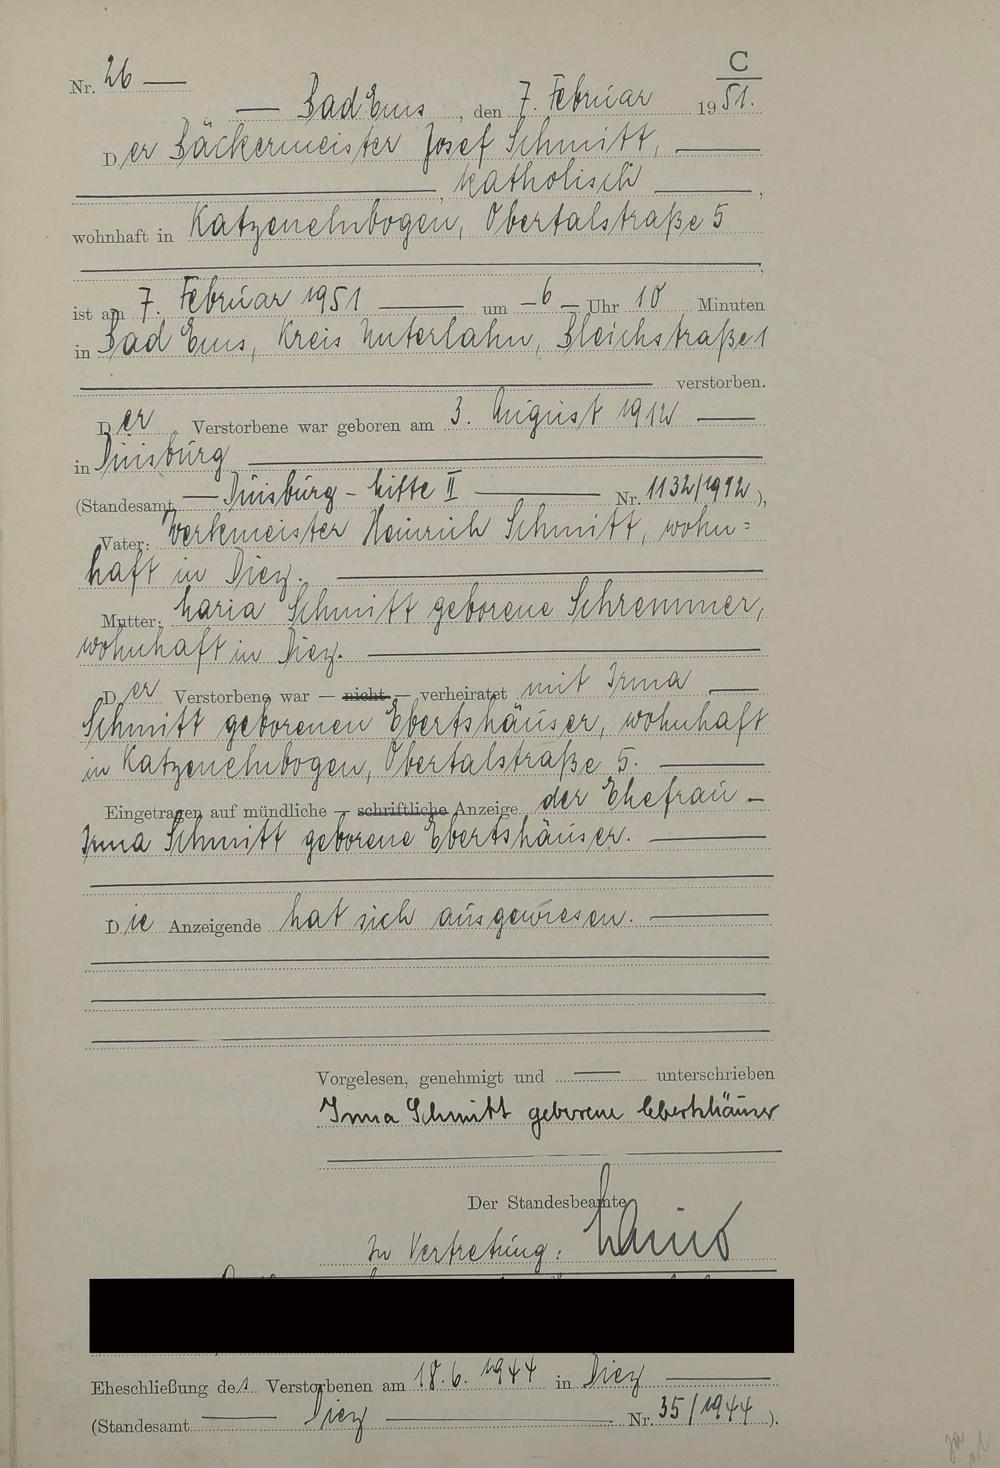 C
Nr. 26
Bad Ems, den 7. Februar 1951.
Der Bäckermeister Josef Schmitt,
, katholisch ,
wohnhaft in Katzenelnbogen, Obertalstraße 5
ist am 7. Februar 1951 um 6 Uhr 10 Minuten
in Bad Ems, Kreis Unterlahn, Bleichstraße 1
verstorben.
Der Verstorbene war geboren am 3. August 1912
in Duisburg
(Standesamt Duisburg - Mitte II Nr. 1132/1912),
Vater: Werkmeister Heinrich Schmitt, wohn=
haft in Diez.
Mutter: Maria Schmitt geborene Schremmer,
wohnhaft in Diez.
Der Verstorbene war — nicht — verheiratet mit Irma
Schmitt geborenen Ebertshäuser, wohnhaft
in Katzenelnbogen, Obertalstraße 5.
Eingetragen auf mündliche — schriftliche Anzeige der Ehefrau
Irma Schmitt geborene Ebertshäuser.
Die Anzeigende hat sich ausgewiesen.
Vorgelesen, genehmigt und unterschrieben
Irma Schmitt geborene Ebertshäuser
Der Standesbeamte
In Vertretung:
Eheschließung des Verstorbenen am 18.6.1944 in Diez
(Standesamt Diez Nr. 35/1944).